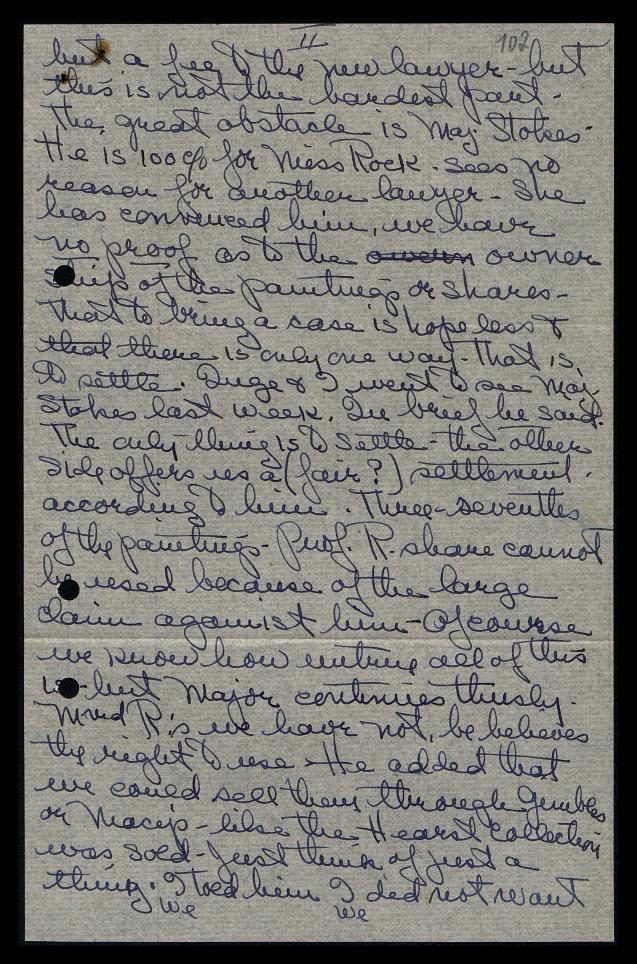 II
102
but a fee to the new lawyer - but
this is not the hardest part -
The great obstacle is Maj. Stokes -
He is 100% for Miss Rock - sees no
reason for another lawyer - She
has convinced him, we have
no proof as to the owner
ship of the paintings or shares -
That to bring a case is hopeless &
that there is only one way - That is,
to settle. Inge & I went to see Maj.
Stokes last week. In brief he said.
The only thing is to settle - the other
side offers us a (fair?) settlement.
according to him. Three-sevenths
of the paintings - Prof. R. share cannot
be used because of the large
claim against him - Of course
we know how untrue all of this
is - but Major continues thusly.
Mrs R's we have not, he believes
the right to use - He added that
we could sell them through Gimbles
or Macys - like the Hearst Collection
was sold - Just think of just a
thing. I told him I did not want
We we